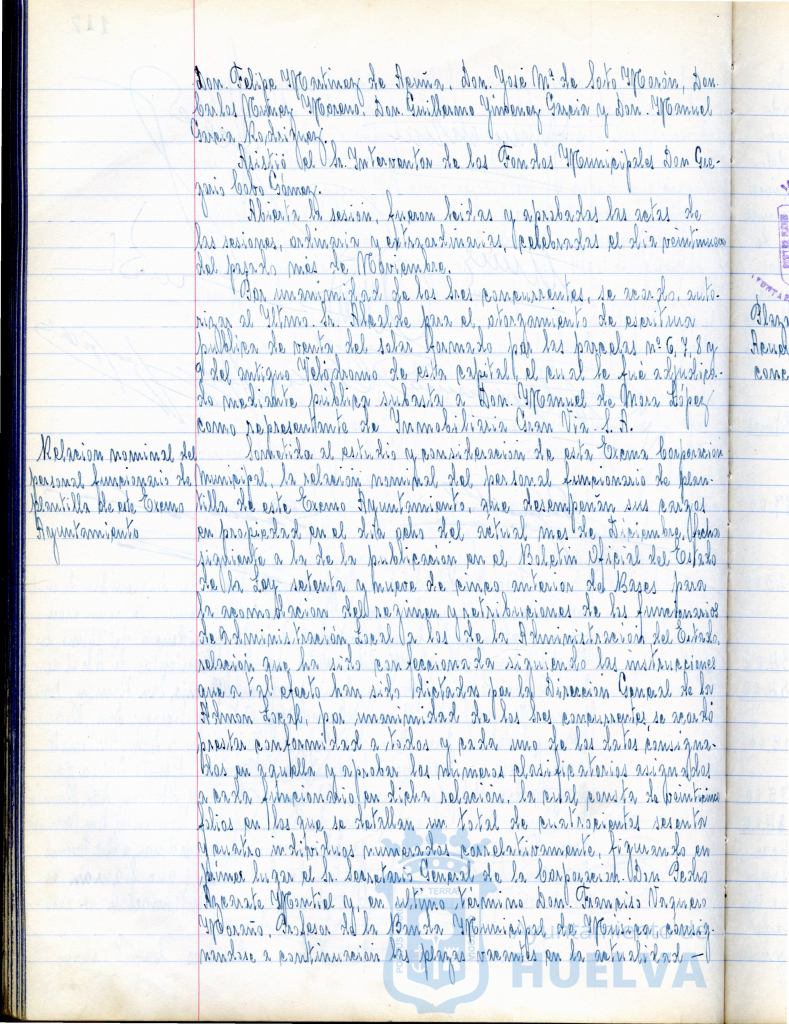 Don. Felipe Martinez de Acuña, Don. José Mª de Soto Morón, Don.
Carlos Nuñez Moreno. Don. Guillermo Jimenez Garcia y Don. Manuel
Garcia Rodriguez.
Asistió el Sr. Interventor de los Fondos Municipales Don Gre-
gorio Cobo Gómez.
Abierta la sesión, fueron leidas y aprobadas las actas de
las sesiones, ordinaria y extraordinarias, celebradas el dia veintinueve
del pasado mes de Noviembre.
Por unanimidad de los Sres concurrentes, se acordó, auto-
rizar al Iltmo. Sr. Alcalde para el otorgamiento de escritura
pública de venta del solar formado por las parcelas nº 6, 7, 8 y
9 del antiguo Velódromo de esta capital, el cual le fue adjudica-
do mediante pública subasta a Don. Manuel de Mora López
como representante de Inmobiliaria Gran Via. S. A.
Relacion nominal del
personal funcionario de
plantilla de este Excmo
Ayuntamiento
Sometida al estudio y consideración de esta Excma Corporación
municipal, la relación nominal del personal funcionario de plan-
tilla de este Excmo Ayuntamiento, que desempeñan sus cargos
en propiedad en el dia ocho del actual mes de Diciembre, fecha
siguiente a la de la publicación en el Boletin Oficial del Estado
de la Ley setenta y nueve de cinco anterior de Bases para
la acomodacion del regimen y retribuciones de los funcionarios
de administración Local a los de la Administración del Estado,
relación que ha sido confeccionada siguiendo las instrucciones
que a tal efecto han sido dictadas por la Direccion General de la
Admon Local, por unanimidad de los Sres concurrentes se acordó
prestar conformidad a todos y cada uno de los datos consigna-
dos en aquella y aprobar los números clasificatorios asignados
a cada funcionario en dicha relación, la cual consta de veinticinco
folios en los que se detallan un total de cuatrocientos sesenta
y cuatro individuos numerados correlativamente, figurando en
primer lugar el Sr. Secretario General de la Corporación Don Pedro
Azcarate Montiel y, en ultimo término Don. Francisco Vazquez
Moraño, Profesor de la Banda Municipal de Musica, consig-
nandose a continuación las plazas vacantes en la actualidad —
Ayuntamiento de
HUELVA